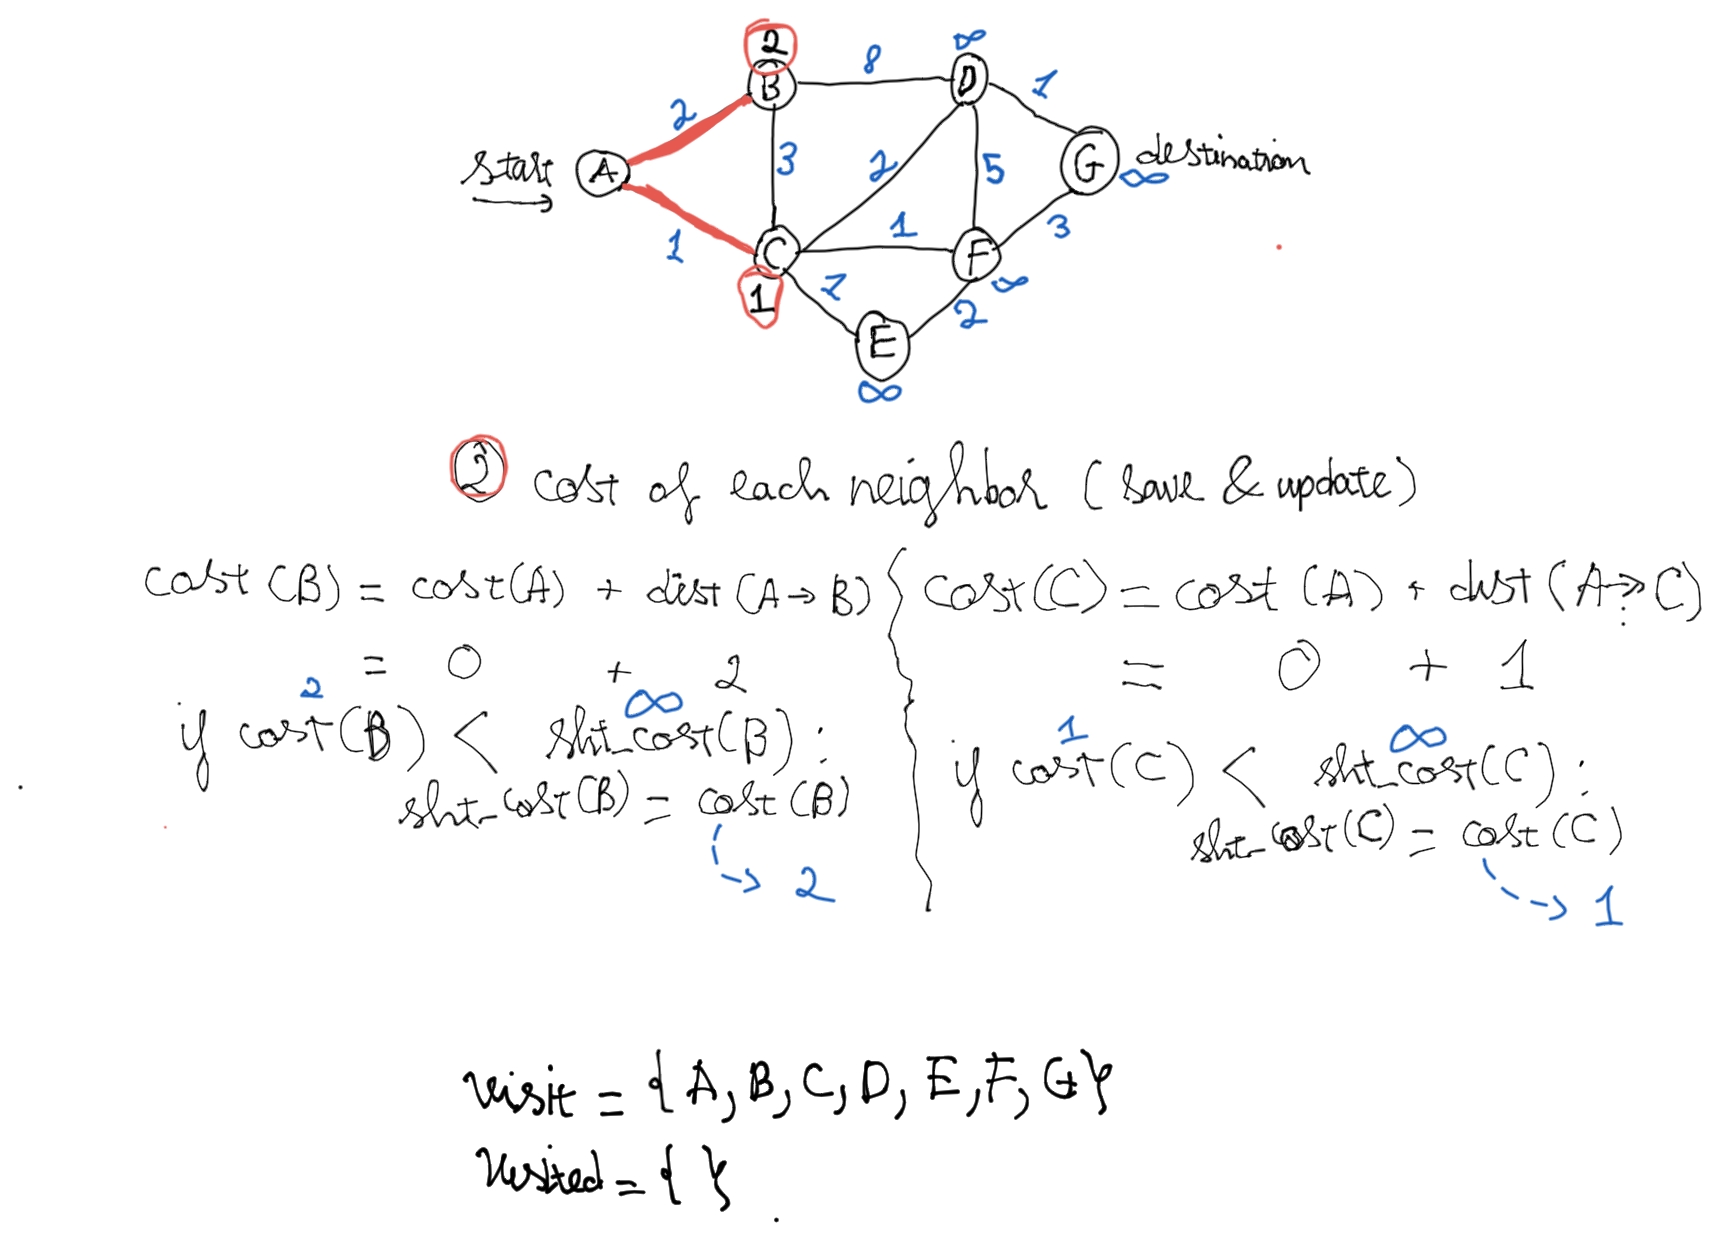 2
B
8
∞
D
1
2
start
A
3
2
5
G
destination
∞
1
C
1
F
3
1
2
∞
2
E
∞
2 cost of each neighbor (save & update)
cost(B) = cost(A) + dist(A→B)
= 0 + 2
2 ∞
if cost(B) < sht_cost(B):
sht_cost(B) = cost(B)
2
cost(C) = cost(A) + dist(A→C)
= 0 + 1
1 ∞
if cost(C) < sht_cost(C):
sht_cost(C) = cost(C)
1
visit = {A, B, C, D, E, F, G}
Visited = { }